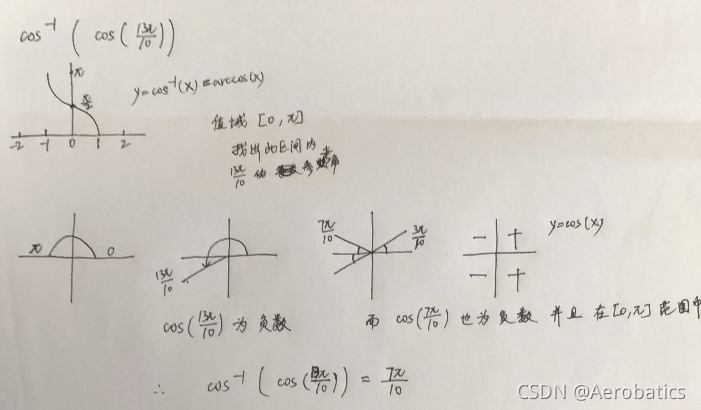 cos⁻¹ ( cos( 13π/10 ) )
π
π/2
-2 -1 0 1 2
y=cos⁻¹(x) = arccos(x)
值域 [0,π]
找出此区间内
13π/10 的 参考角
π 0
13π/10
7π/10 3π/10
− +
− +
y=cos(x)
cos(13π/10) 为负数
而 cos(7π/10) 也为负数 并且 在[0,π] 范围中
∴ cos⁻¹ ( cos(13π/10)) = 7π/10
CSDN @Aerobatics